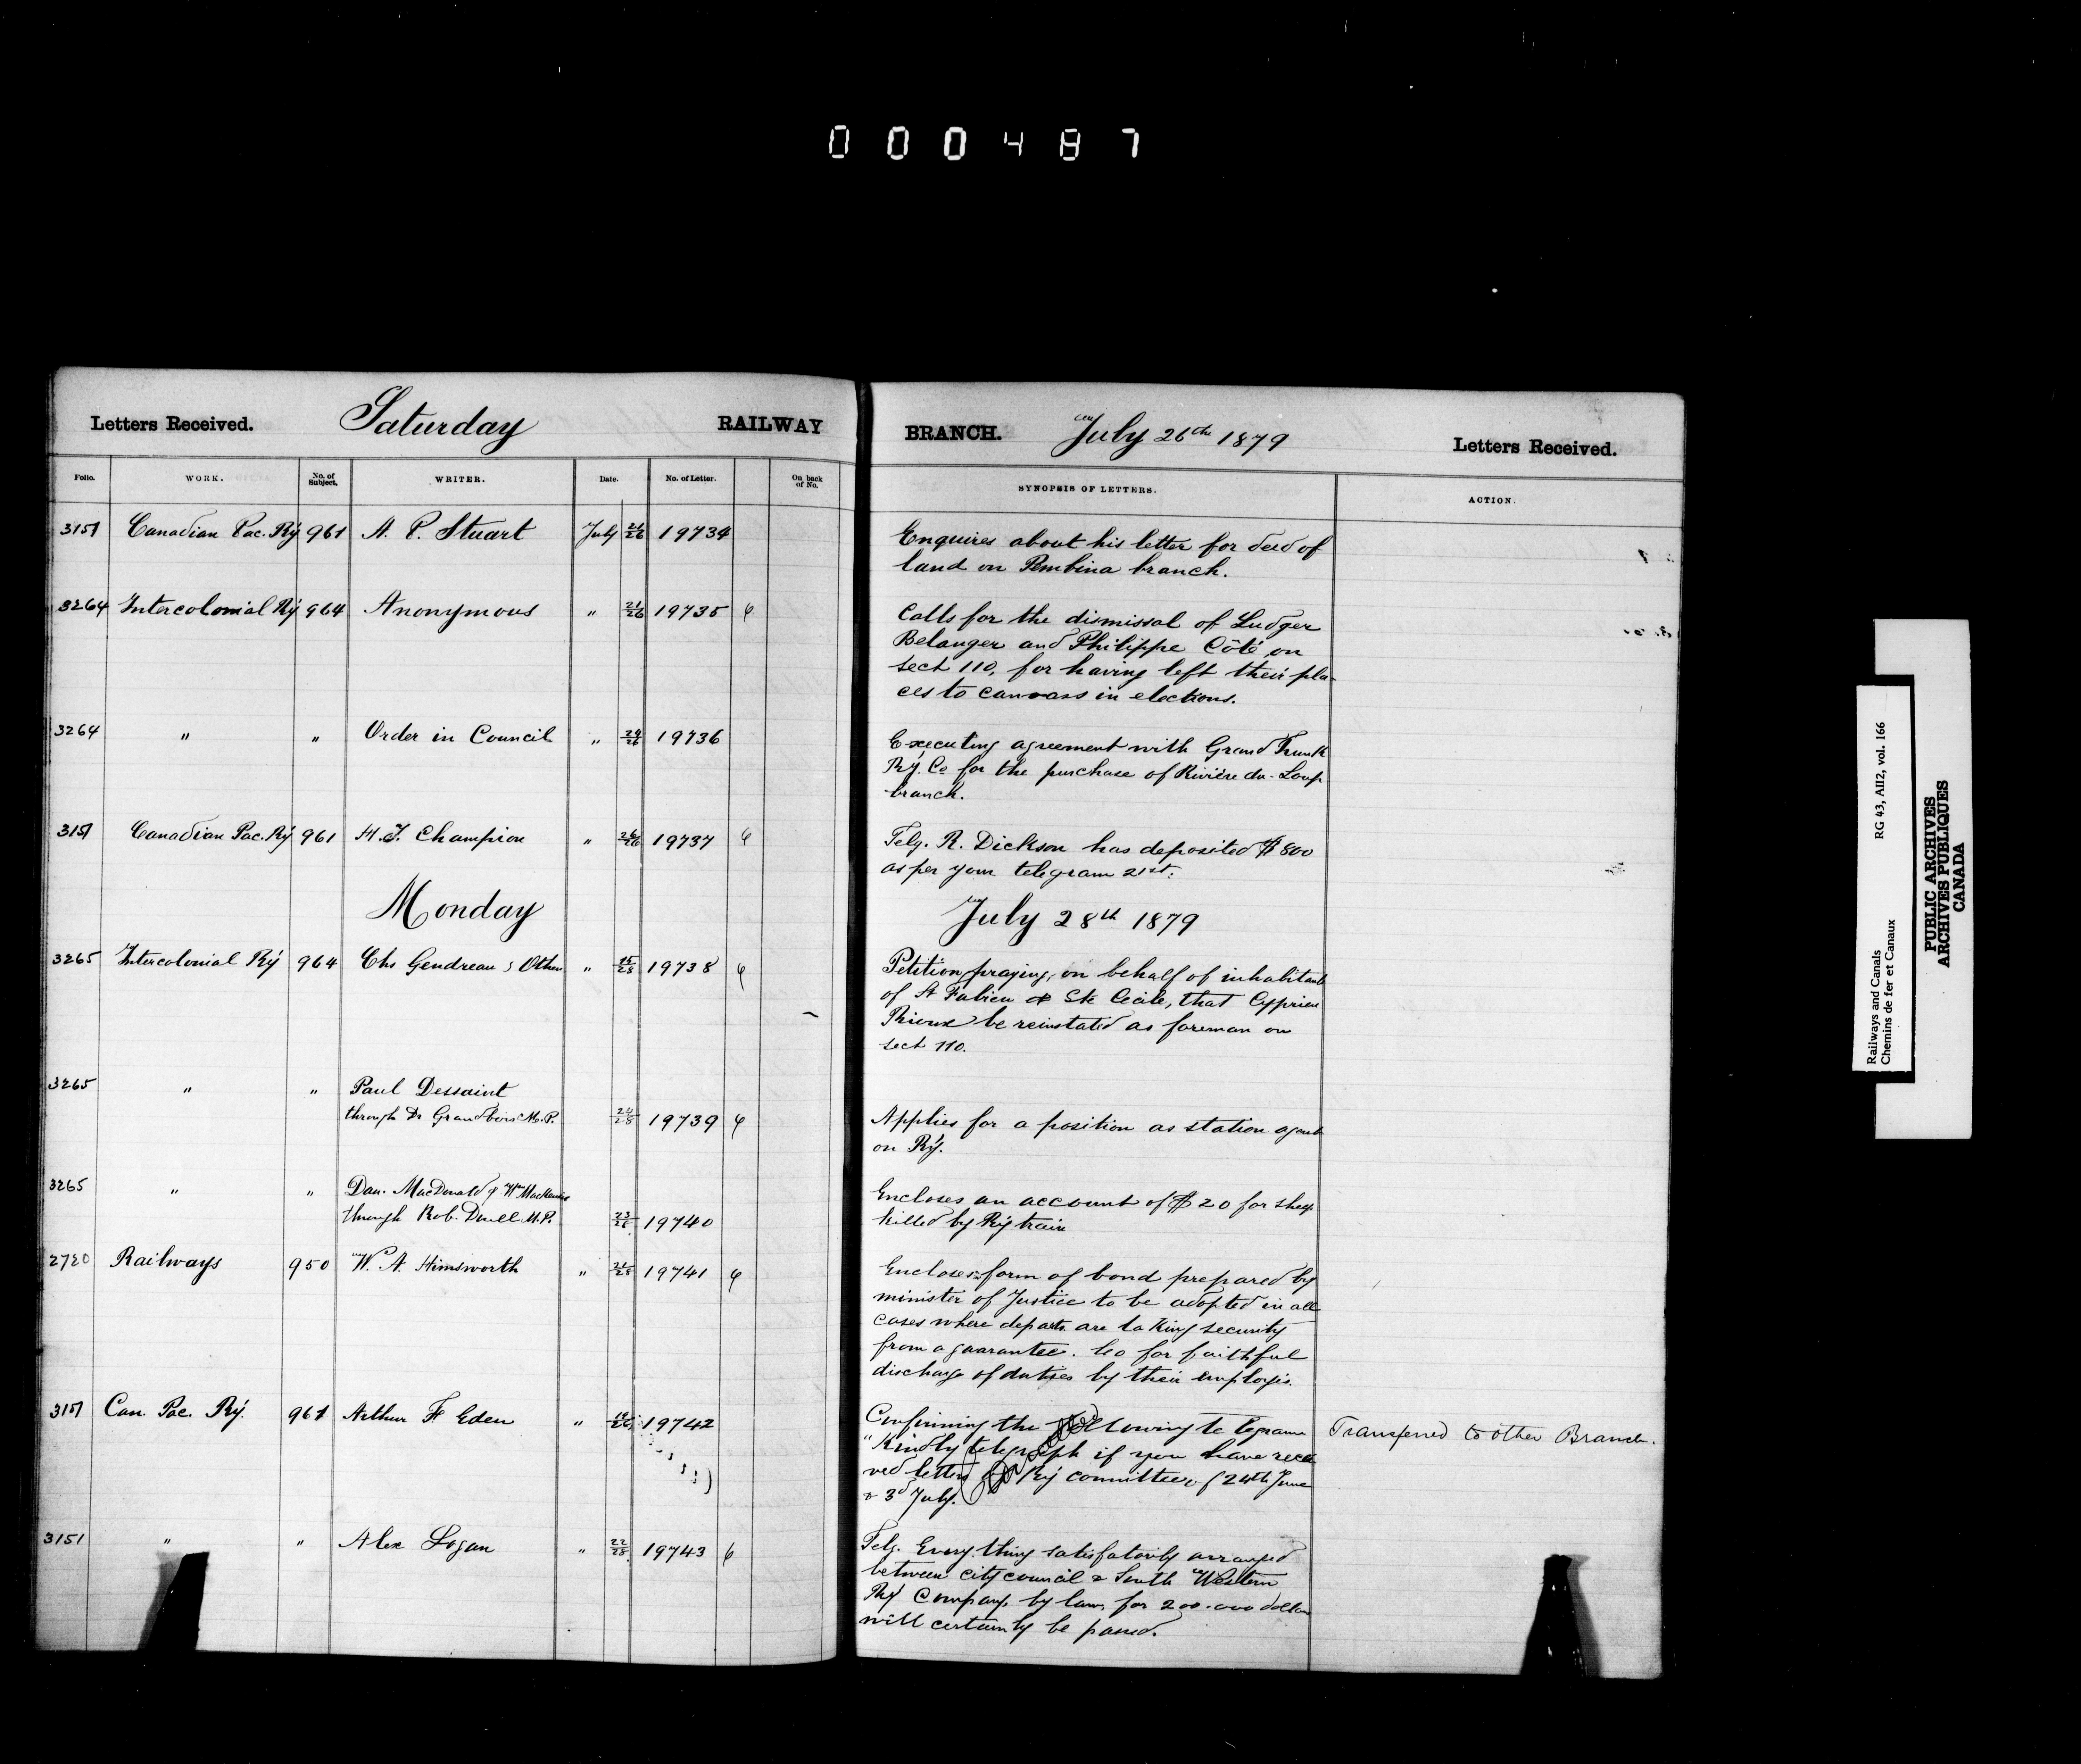 0 0 0 4 8 7
Letters Received. Saturday RAILWAY BRANCH. July 26th 1879 Letters Received.
Folio. WORK. No. of Subject. WRITER. Date. No. of Letter. On back of No. SYNOPSIS OF LETTERS. ACTION.
3151 Canadian Pac. Ry 961 A. P. Stuart July 21/26 19734 Enquires about his letter for deed of
land on Pembina branch.
3264 Intercolonial Ry 964 Anonymous " 21/26 19735 Calls for the dismissal of Ludger
Belanger and Philippe Côté on
sect 110, for having left their pla-
ces to canvass in elections.
3264 " " Order in Council " 24/26 19736 Executing agreement with Grand Trunk
Ry. Co for the purchase of Rivière du-Loup
branch.
3151 Canadian Pac. Ry 961 H. J. Champion " 26/26 19737 Telg. R. Dickson has deposited $800
as per your telegram 21st.
Monday July 28th 1879
3265 Intercolonial Ry 964 Chs Gendreau & Others " 15/28 19738 Petition praying, on behalf of inhabitants
of St Fabien & Ste Cecile, that Cyprien
Rioux be reinstated as foreman on
sect 110.
3265 " " Paul Dessaint
through Dr Grandbois M.P. 24/28 19739 Applies for a position as station agent
on Ry.
3265 " " Dan. MacDonald & Wm MacKenzie Encloses an account of $20 for sheep
through Rob. Doull M.P. 23/26 19740 killed by Ry train
2720 Railways 950 W. A. Himsworth " 19741 Encloses form of bond prepared by
minister of Justice to be adopted in all
cases where departs. are taking security
from a guarantee. Co for faithful
discharge of duties by their employés.
3151 Can. Pac. Ry. 961 Arthur F Eden " 19742 Confirming the following telegram Transferred to other Branch.
"Kindly telegraph if you have recei
ved letters Ry committee of 24th June
& 3d July.
3151 " " Alex Logan " 22/28 19743 Telg. Everything satisfatorily arranged
between city council & South Western
Ry Company, by law, for 200.000 dollars
will certainly be passed.
Railways and Canals RG 43, AII2, vol. 166
Chemins de fer et Canaux
PUBLIC ARCHIVES
ARCHIVES PUBLIQUES
CANADA